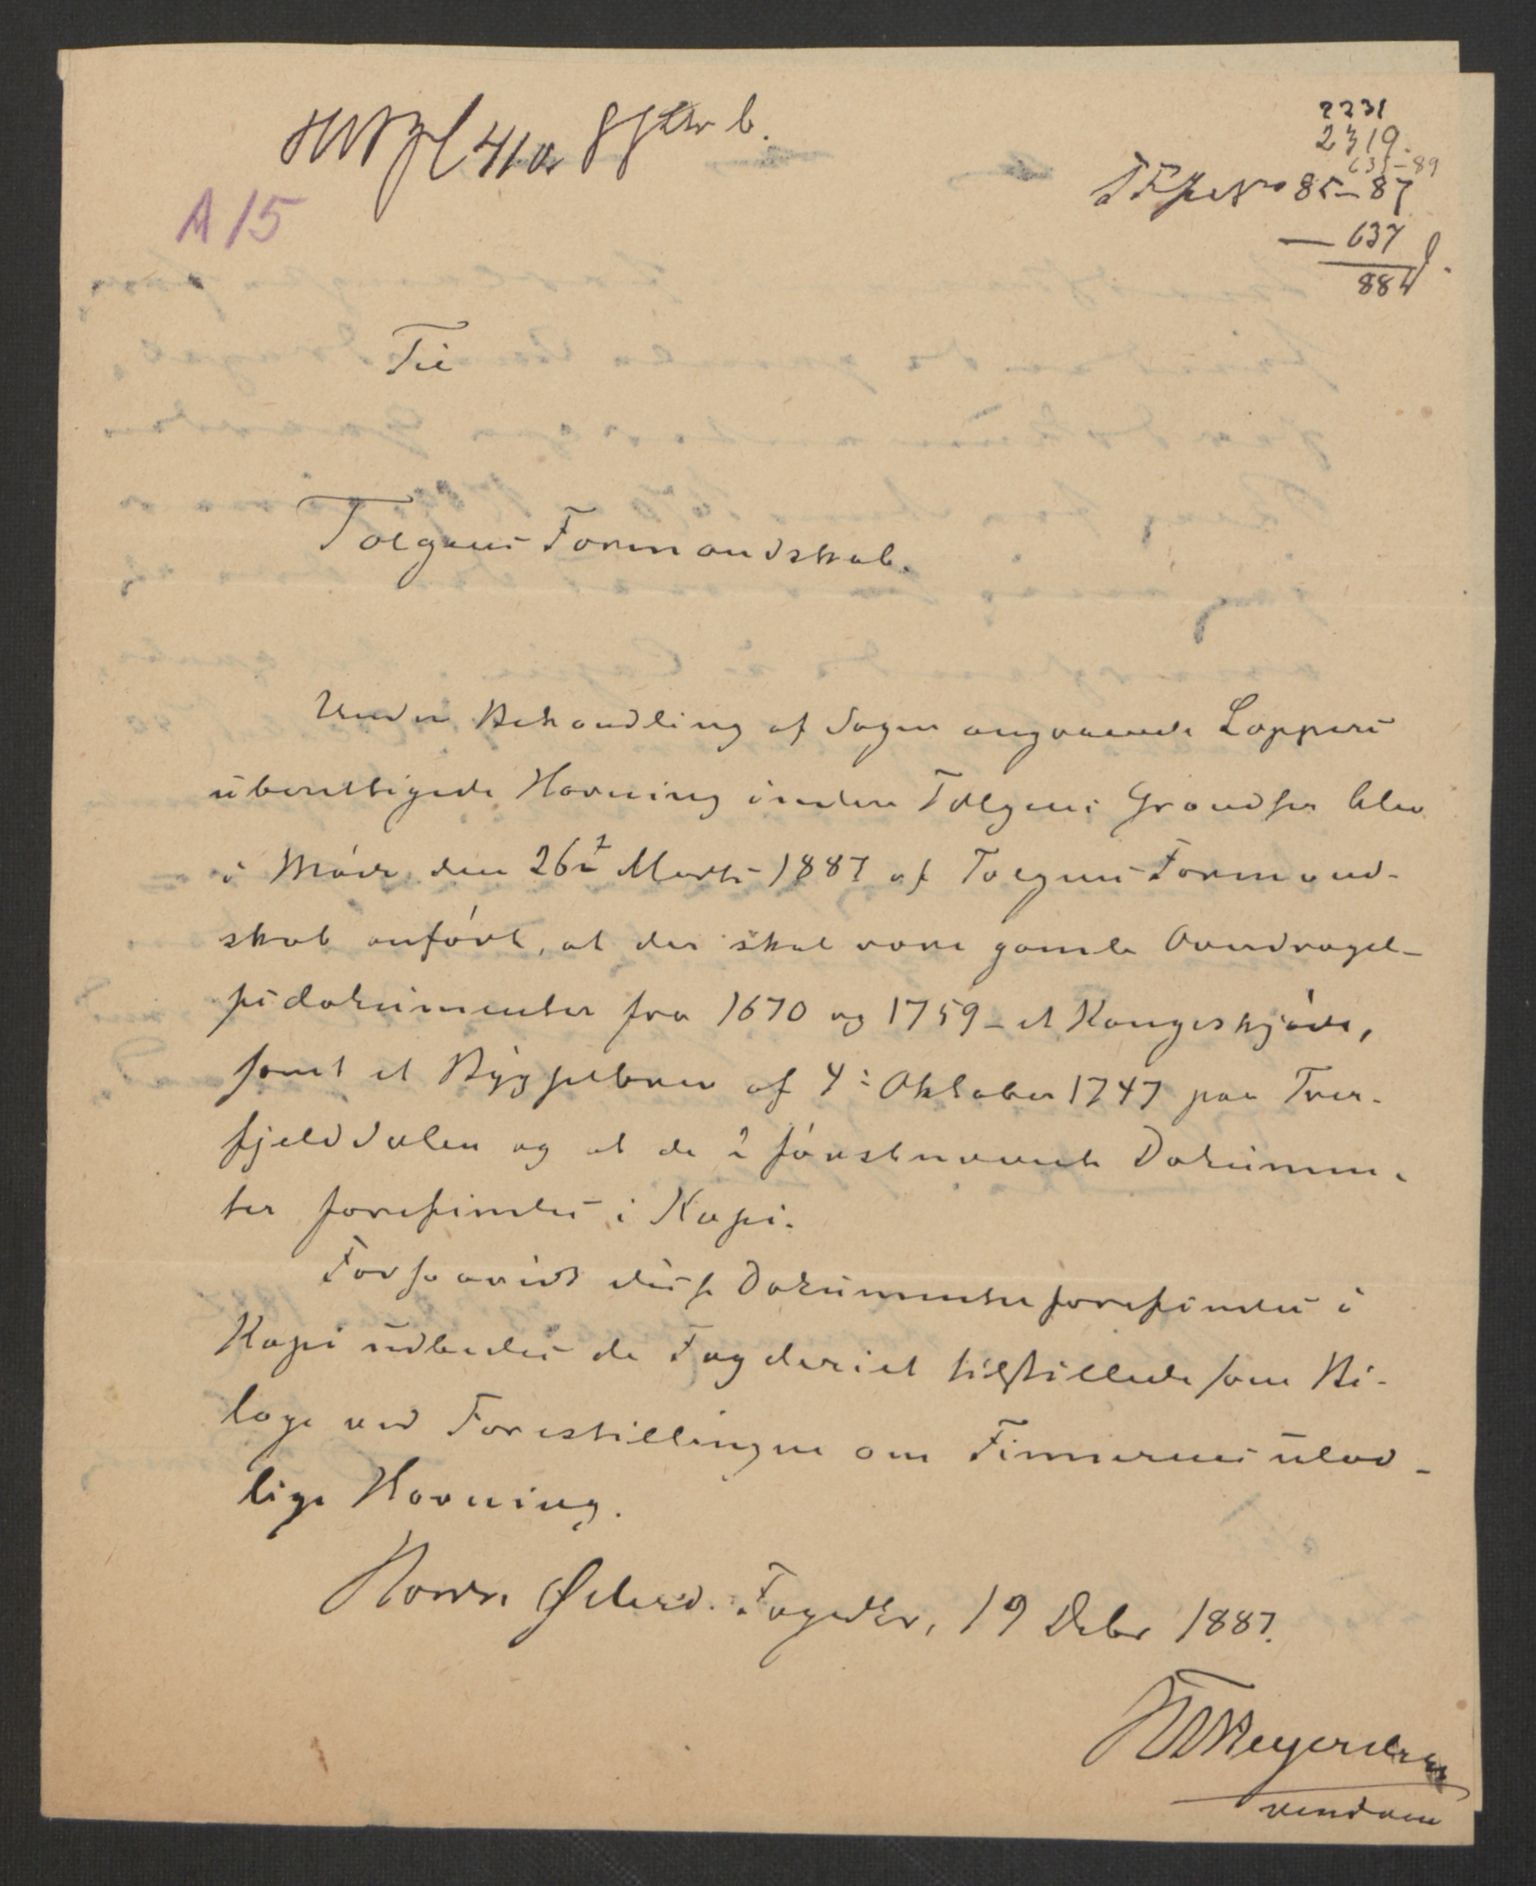 2231
2319.
635-89
85-87
A 15
— 637
884
Til
Tolgens Formandskab.
Under Behandling af Sagen angaaende Lappers
uberettigede Havning inden Tolgens Grændser blev
i Møde den 26de Marts 1887 af Tolgens Formand-
skab anført, at der skal være gamle Overdragel-
sesdokumenter fra 1670 og 1759 - et Kongeskjøde,
samt et Bygselbrev af 4: Oktober 1747 paa Tver-
fjelddalen og at de 2 førstnævnte Dokumen-
ter forefindes i Kopi.
Forsaavidt disse Dokumenter forefindes i
Kopi udbedes de Fogderiet tilstillede som Bi-
lage ved Forestillingen om Finnernes ulov-
lige Havning.
Nordre Østerd. Fogedkr, 19 Debr 1887.
vendom